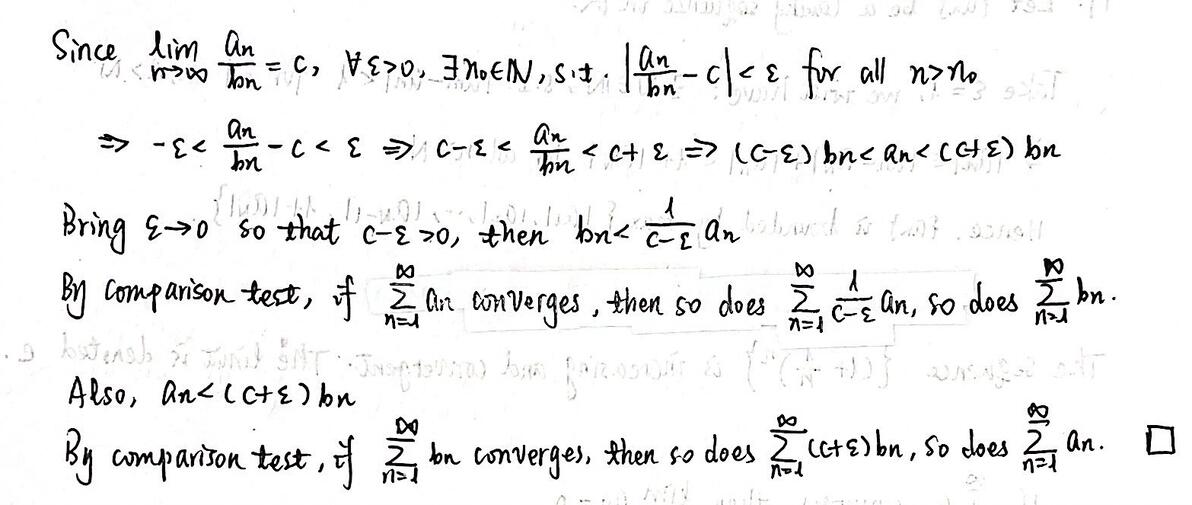 Since lim_{n→∞} an/bn = c, ∀ε>0, ∃n₀∈ℕ, s.t. |an/bn - c| < ε for all n>n₀
⇒ -ε < an/bn - c < ε ⇒ c-ε < an/bn < c+ε ⇒ (c-ε) bn < an < (c+ε) bn
Bring ε→0 so that c-ε>0, then bn < 1/(c-ε) an
By comparison test, if ∑_{n=1}^{∞} an converges, then so does ∑_{n=1}^{∞} 1/(c-ε) an, so does ∑_{n=1}^{∞} bn.
Also, an < (c+ε) bn
By comparison test, if ∑_{n=1}^{∞} bn converges, then so does ∑_{n=1}^{∞} (c+ε) bn, so does ∑_{n=1}^{∞} an. □